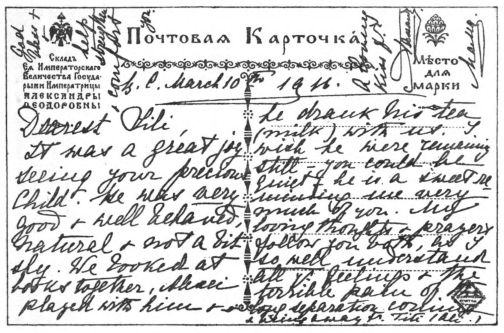 Почтовая Карточка
Складъ
Ея Императорскаго
Величества Госуда-
рыни Императрицы
Александры
Ѳеодоровны
Мѣсто
для
марки
God
bless &
help
comfort
you
A loving
kiss fr.
Mama
March 10th 1916.
Dearest Lili
It was a great joy
seeing your precious
Child. He was very
good & well behaved,
natural & not a bit
shy. We looked at
books together, Alexei
played with him &
he drank his tea
(milk) with us. I
wish he were remaining
still - you could be
quiet, he is a sweet re-
minding me very
much of you. My
loving thoughts & prayers
follow you both, as I
so well understand
all yr. feelings & the
horrible pain of the
long separation coming
& being away fr. Titi